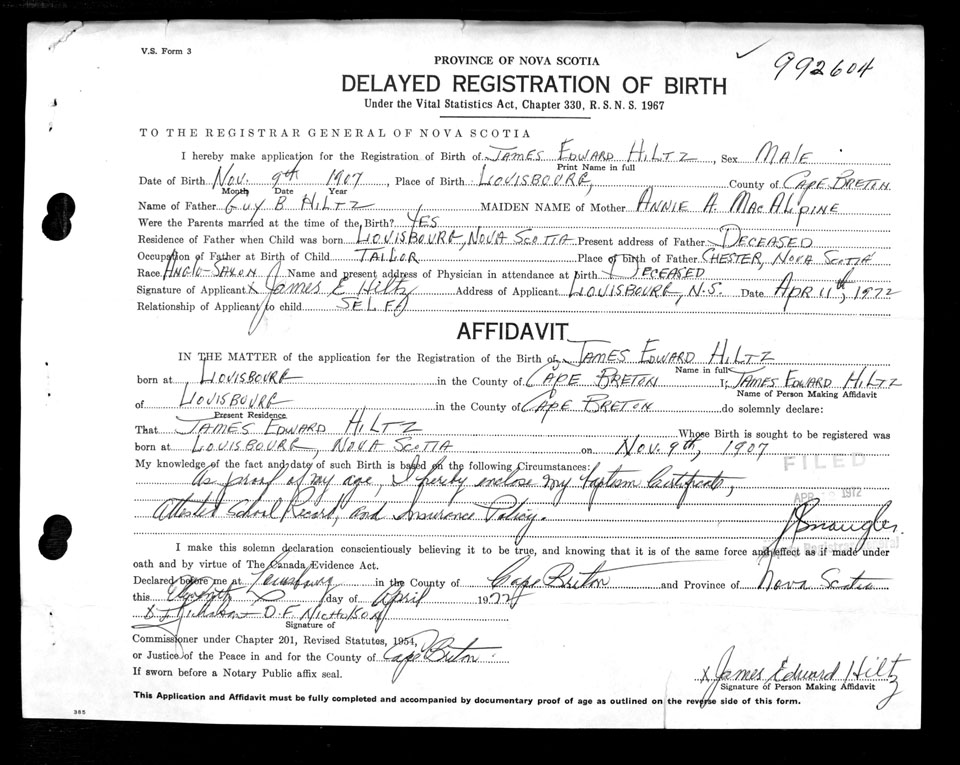 V.S. Form 3
992604
PROVINCE OF NOVA SCOTIA
DELAYED REGISTRATION OF BIRTH
Under the Vital Statistics Act, Chapter 330, R.S.N.S. 1967
TO THE REGISTRAR GENERAL OF NOVA SCOTIA
I hereby make application for the Registration of Birth of JAMES EDWARD HILTZ, Sex MALE
Print Name in full
Date of Birth NOV. 9th 1907, Place of Birth LOUISBOURG, County of CAPE BRETON
Month Date Year
Name of Father GUY B HILTZ MAIDEN NAME of Mother ANNIE A. MACALPINE
Were the Parents married at the time of the Birth? YES
Residence of Father when Child was born LOUISBOURG, NOVA SCOTIA Present address of Father DECEASED
Occupation of Father at Birth of Child TAILOR Place of birth of Father CHESTER, NOVA SCOTIA
Race ANGLO-SAXON Name and present address of Physician in attendance at birth DECEASED
Signature of Applicant x James E Hiltz Address of Applicant LOUISBOURG, N.S. Date APRIL 11th, 1972
Relationship of Applicant to child SELF
AFFIDAVIT
IN THE MATTER of the application for the Registration of the Birth of JAMES EDWARD HILTZ
Name in full
born at LOUISBOURG in the County of CAPE BRETON I, JAMES EDWARD HILTZ
Name of Person Making Affidavit
of LOUISBOURG in the County of CAPE BRETON do solemnly declare:
Present Residence
That JAMES EDWARD HILTZ Whose Birth is sought to be registered was
born at LOUISBOURG, NOVA SCOTIA on NOV. 9th, 1907
FILED
My knowledge of the fact and date of such Birth is based on the following Circumstances:
As proof of my age, I hereby enclose my baptism Certificate,
APR 1972
Attested School Record, and Insurance Policy.
I make this solemn declaration conscientiously believing it to be true, and knowing that it is of the same force and effect as if made under
oath and by virtue of The Canada Evidence Act.
Declared before me at Louisbourg in the County of Cape Breton and Province of Nova Scotia
this day of April 1972
D. F. Nicholson D.F. NICHOLSON
Signature of
Commissioner under Chapter 201, Revised Statutes, 1954,
or Justice of the Peace in and for the County of Cape Breton
If sworn before a Notary Public affix seal.
x James Edward Hiltz
Signature of Person Making Affidavit
This Application and Affidavit must be fully completed and accompanied by documentary proof of age as outlined on the reverse side of this form.
365